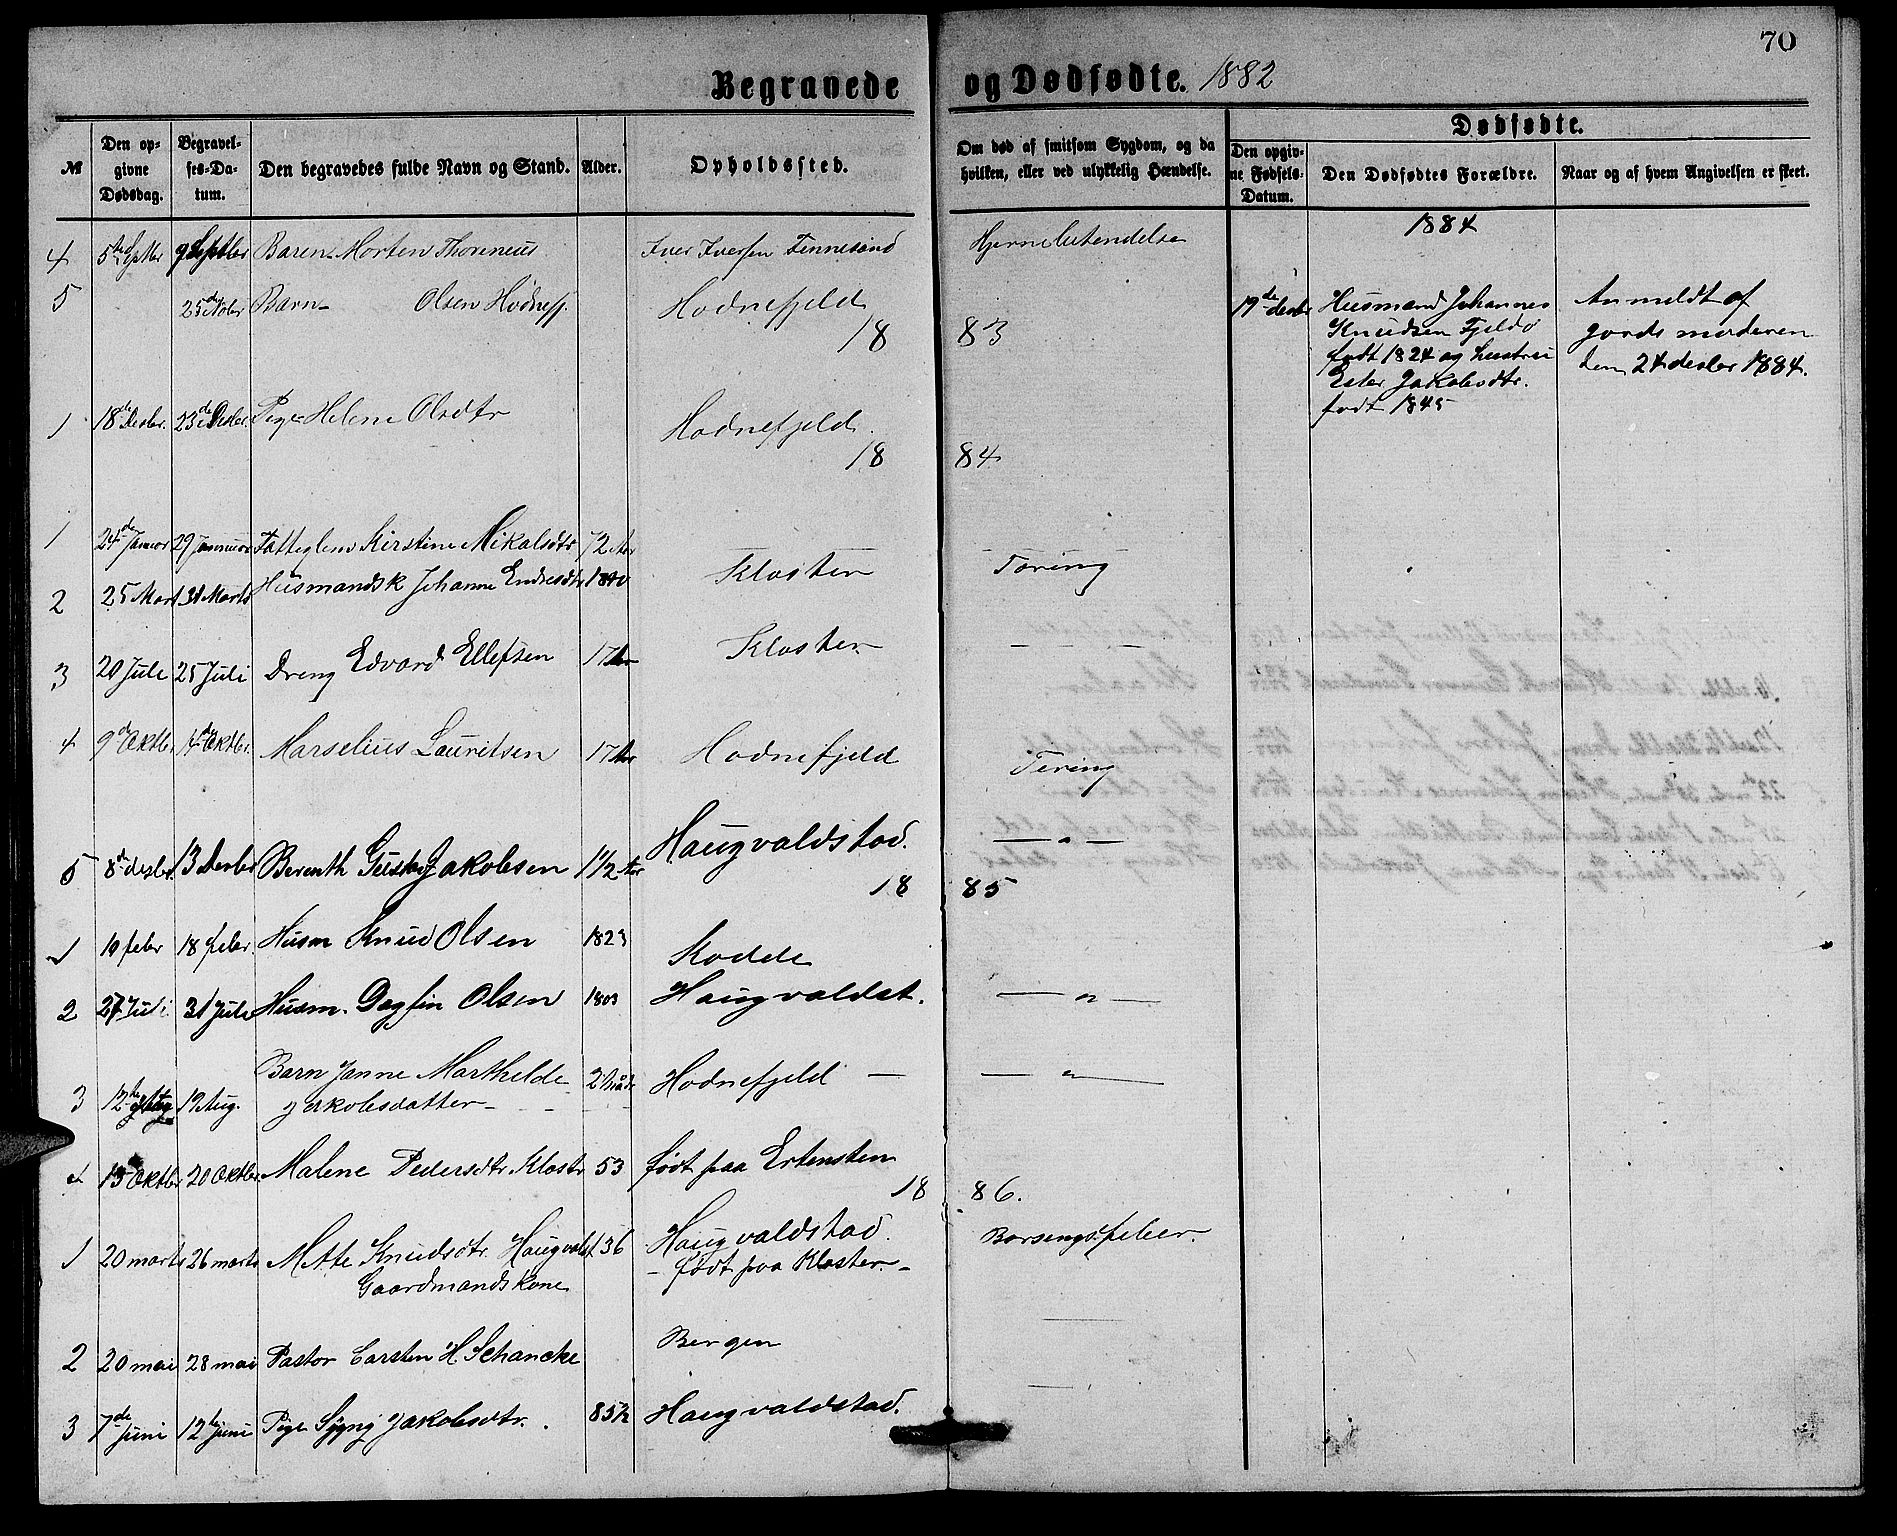 70
Begravede og Dødfødte. 1882
№ Den opgivne Dødsdag. Begravelses-Datum. Den begravedes fulde Navn og Stand. Alder. Opholdssted. Om død af smitsom Sygdom, og da hvilken, eller ved ulykkelig Hændelse. Dødfødte. Den opgivne Fødsels-Datum. Den Dødfødtes Forældre. Naar og af hvem Angivelsen er skeet.
4 5te Septbr 9 Septbr Baren Morten Thonneus Iver Iversen Finnesand Hjernebetendelse
1884
5 25de Nober Barn Olsen Hodnefj. Hodnefjeld
19de desbr Husmand Johannes
Knudsen Fjeldø
født 1824 og hustru
Ester Jakobsdtr.
født 1845
Anmeldt af
jordsmoderen
den 24 desbr 1884.
18 83
1 18de Desbr. 23de Desbr. Pige Helene Olsdtr Hodnefjeld.
18 84
1 24de Januar 29 Januar Fattiglem Kirstine Mikalsdtr 72 Aar
Kloster Tæring
2 25 Mart 31 Marts Husmandsk Johanne Endresdtr 1840
3 20 Juli 25 Juli Dreng Edvard Ellefsen 17 Aar Kloster. — - —
4 9de Oktbr. 14de Oktbr. Marselius Lauritsen 17 Aar Hodnefjeld Tering
5 8de desbr. 13 Desbr Berenth Gustav Jakobsen 1 1/2 Aar Haugvaldstad. — " —
18 85
1 10 febr 18 febr. Husm Knud Olsen 1823 Kodde
2 27 Juli 31 Juli Husm. Dagfin Olsen 1803 Haugvaldst. — " —
3 12te Aug 19 Aug. Barn Janne Marthilde
Jakobsdatter 2 Maad. Hodnefjeld — — " —
4 15 Oktbr 20 Oktbr. Malene Pedersdtr Klostr 53 født paa Ertensten
18 86.
1 20 marts 26 marts Mette Knudsdtr. Haugvalst. 36 Haugvaldstad. Barsengsfeber.
Gaardmandskone - født paa Kloster. -
2 20 mai 28 mai Pastor Carsten H. Schancke Bergen
3 7de Juni 12te Juni Pige Sygnj Jakobsdtr. 85 1/2 Haugvaldstad.